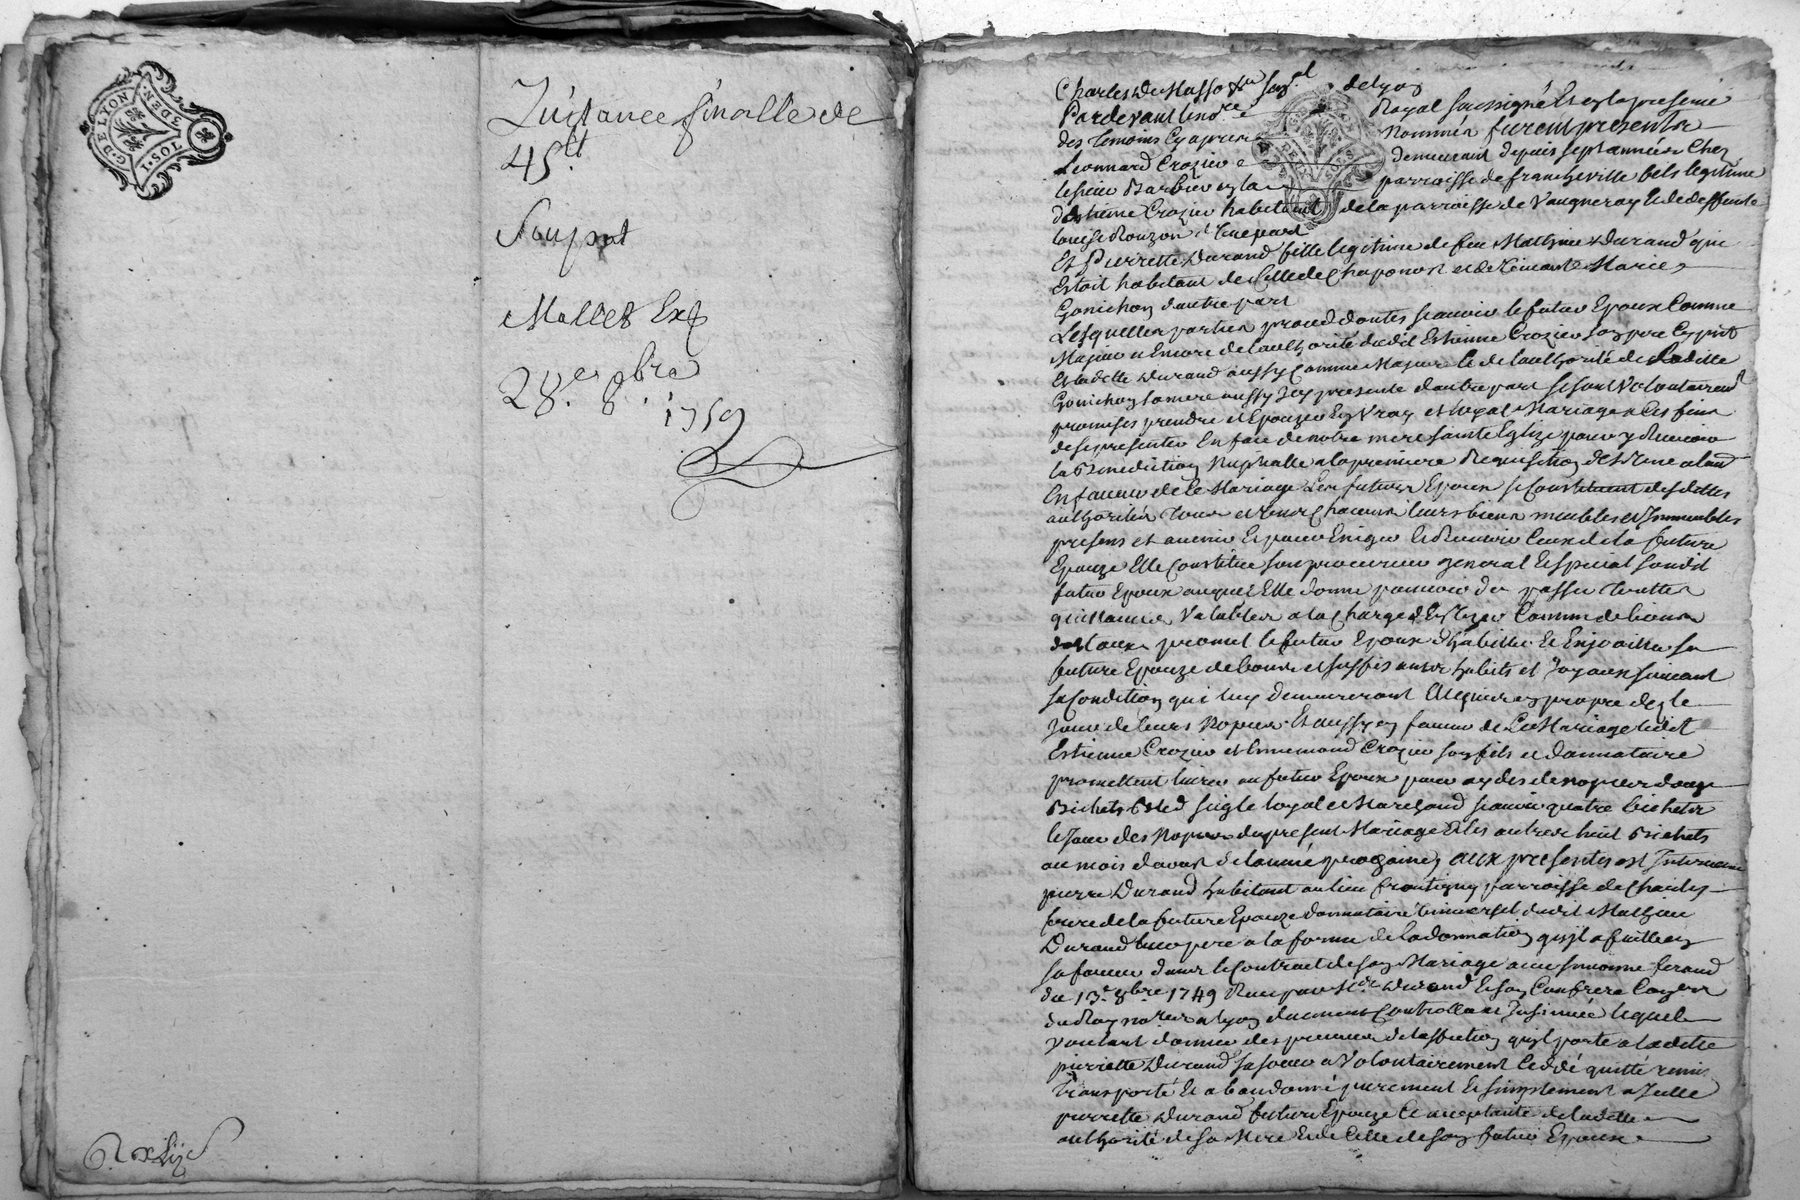 G. DE LYON. 3 DEN. 1. SOL
Quittance finalle de
45.lt
Soupat
28.e 8.bre
1759
Pardevant le no.re Royal soussigné Et en la presence
des temoins cy apres nommés furent presents
Leonnard Crozier demeurant depuis sept années Chez
le sieur Barbier parroisse de francheville fils legitime
d'Estienne Crozier habitant de la parroisse de Vaugneray & de deffunte
louise Rouzon d'une part
Et Pierrette Durand fille legitime de feu Mathieu Durand qui
Estoit habitant de Celle de Chaponost et de vivante Marie
Gonichon d'autre part
Lesquelles parties procedantes scauoir le futur Epoux Comme
Majeur & Encore de l'authorité dudit Estienne Crozier son pere Cy pnt
Et ladite Durand aussy Comme Majeure & de l'authorité de Ladite
Gonichon sa mere aussy Icy presente d'autre part se sont Volontairemt
promises prendre et Epouzer En Vray et loyal Mariage & a Ces fins
de se presenter En face de notre mere sainte Eglize pour y Recevoir
la Benediction Nuptialle a la premiere Requisition de L'une a l'autre
En faueur de Ce Mariage Les futurs Epoux se Constituent desdittes
authorités tous et un Chacuns leurs biens meubles et Immeubles
presens et auenir Et pour Exiger & Receuoir Ceux de la future
Epouze Elle Constitue son procureur general & special sondit
futur Epoux auquel Elle donne pouuoir d'en passer toutes
quittances Valables a la Charge d'En Comme de biens
dotaux promet le futur Epoux d'habiller & Enjoailler sa
future Epouze de bons et suffisants habits et Joyaux suiuant
sa Condition qui luy demeureront Acquis en propre dez le
Jour de leurs Nopces. Et aussy en faueur de Ce Mariage ledit
Estienne Crozier et Ennemond Crozier son fils et donnataire
promettent liurer au futur Epoux pour aydes de nopces douze
Bichets Bled seigle loyal & Marchand scauoir quatre bichets
le Jour des Nopces du present Mariage & les autres huit Bichets
au mois d'aoust de l'année prochaine, aux presentes est Interuenu
pierre Durand habitant au lieu parroisse de
frere de la future Epouze donnataire Vniuersel dudit Mathieu
Durand leur pere a la forme de la donnation qu'il a fuitte en
sa faueur dans le Contract de son Mariage auec ferand
du 13.e 8bre 1749 Receu par Me Durand & son Confrere Con.ers
du Roy no.res a Lyon duement Controllé & Insinué lequel
voulant donner des preuues de l'affection qu'il porte a ladite
pierrette Durand sa soeur a Volontairement Ceddé quitté remis
transporté & abandonné purement & simplement a Icelle
pierrette Durand future Epouze Ce acceptante de ladite
authorité de sa Mere & de Celle de son futur Epoux